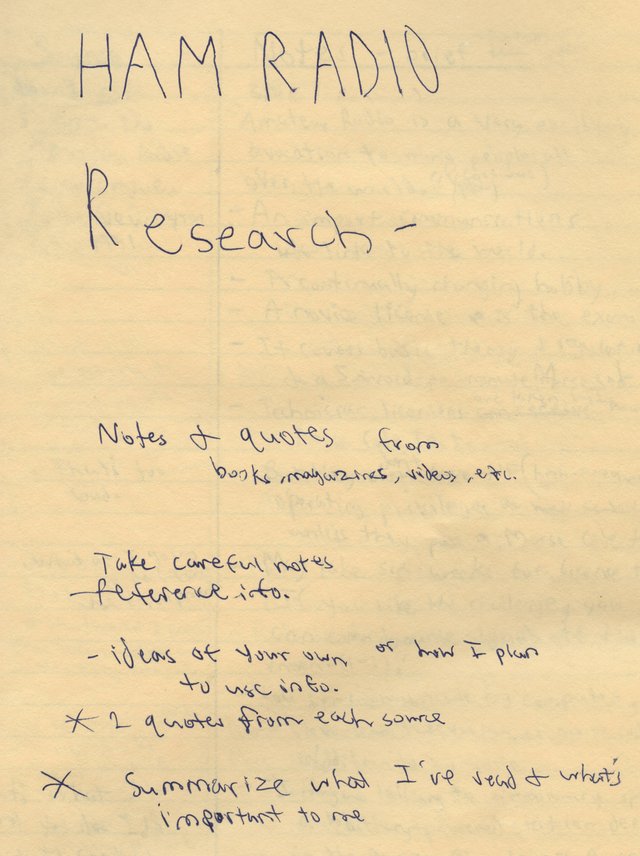 HAM RADIO
Research -
Notes & quotes from
books, magazines, videos, etc.
Take careful notes
- reference info.
- ideas of your own or how I plan
to use info.
* 2 quotes from each source
* Summarize what I've read & what's
important to me